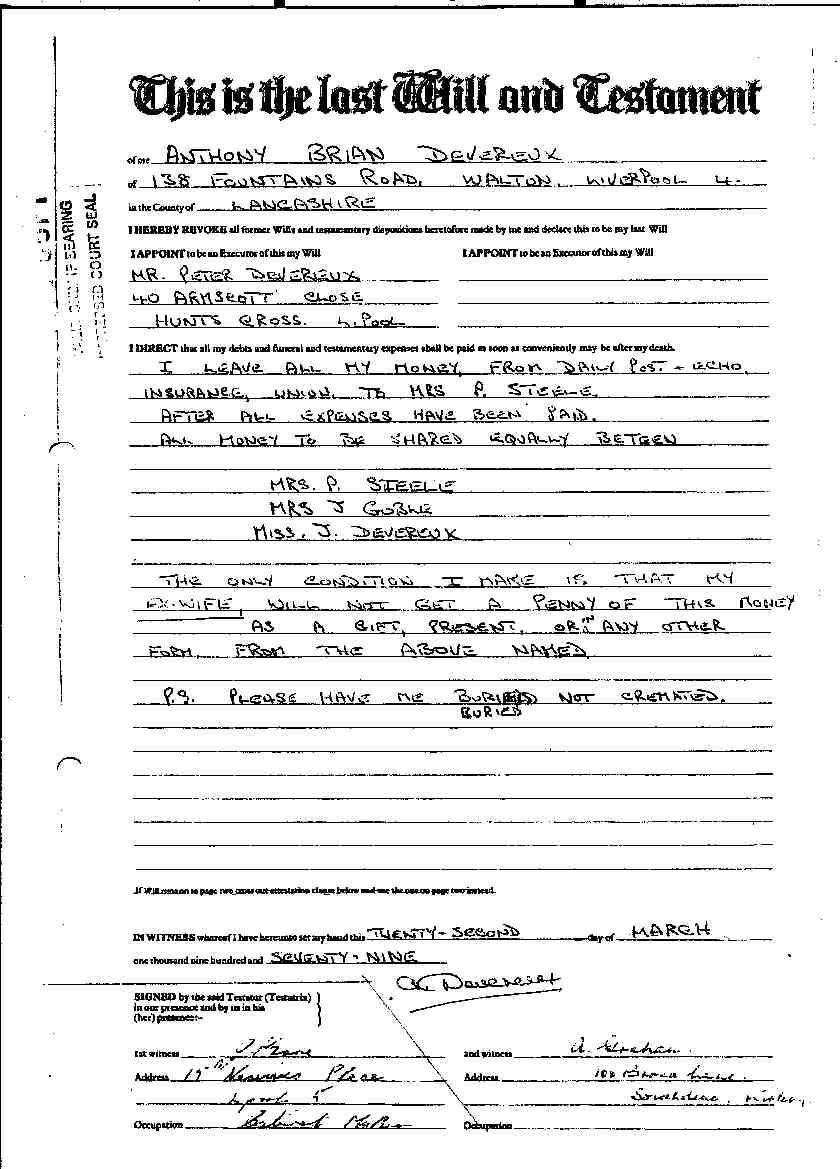 This is the last Will and Testament
of me ANTHONY BRIAN DEVEREUX
of 138 FOUNTAINS ROAD, WALTON, LIVERPOOL 4.
in the County of LANCASHIRE
I HEREBY REVOKE all former Wills and testamentary dispositions heretofore made by me and declare this to be my last Will
I APPOINT to be an Executor of this my Will
MR. PETER DEVERIEUX
40 ARMSCOTT CLOSE
HUNTS CROSS. L.POOL
I APPOINT to be an Executor of this my Will
I DIRECT that all my debts and funeral and testamentary expenses shall be paid as soon as conveniently may be after my death.
I LEAVE ALL MY MONEY, FROM DAILY POST - ECHO,
INSURANCE, UNION, TO MRS P. STEELE.
AFTER ALL EXPENSES HAVE BEEN PAID.
ALL MONEY TO BE SHARED EQUALLY BETEEN
MRS. P. STEELE
MRS J
MISS. J. DEVEREUX
THE ONLY CONDITION I MAKE IS THAT MY
EX-WIFE, WILL NOT GET A PENNY OF THIS MONEY
AS A GIFT, PRESENT, OR IN ANY OTHER
FORM, FROM THE ABOVE NAMED
P.S. PLEASE HAVE ME BURIED NOT CREMATED.
BURIED
If Will runs on to page two cross out attestation clause below and use the one on page two instead.
IN WITNESS whereof I have hereunto set my hand this TWENTY-SECOND day of MARCH
one thousand nine hundred and SEVENTY-NINE
SIGNED by the said Testator (Testatrix)
in our presence and by us in his
(her) presence:-
1st witness
Address Place
Occupation
2nd witness A. Graham.
Address
Occupation
BEARING
COURT SEAL